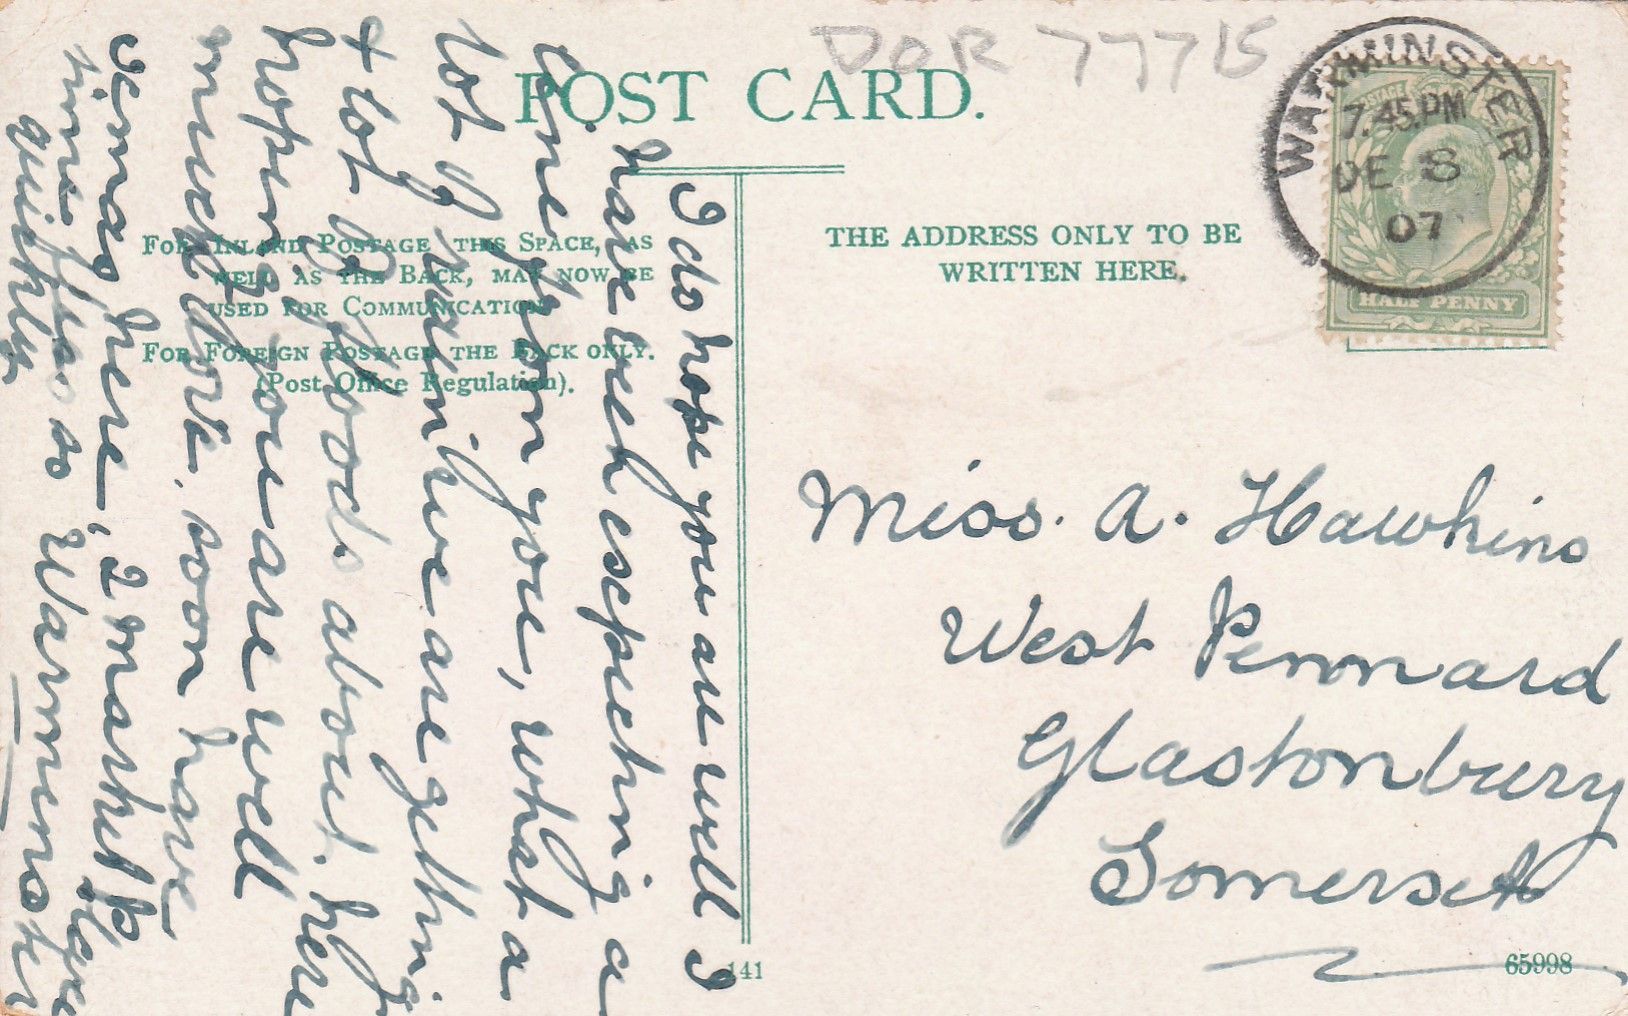 DOR 77715
POST CARD.
FOR INLAND POSTAGE THIS SPACE, AS
WELL AS THE BACK, MAY NOW BE
USED FOR COMMUNICATION.
FOR FOREIGN POSTAGE THE BACK ONLY.
(Post Office Regulation).
THE ADDRESS ONLY TO BE
WRITTEN HERE.
WARMINSTER
7.45.PM
DE 8
07
POSTAGE
HALF PENNY
I do hope you are well I
have been expecting a
line from you, what a
lot of rain we are getting
& lot of floods about here
hoping you are well
much love. soon have
Xmas here, 2 market place
time flies so Warminster
quickly
Miss. A. Hawkins
West Pennard
Glastonbury
Somerset
141
65998